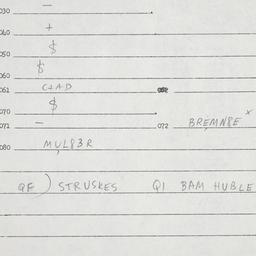 030 —
040 +
050 $
060 $
061 C+A D
070 $
071 — 072 BREMN8E x
080 MUL83R
QF) STRUSKES Q1 BAM HUBLE